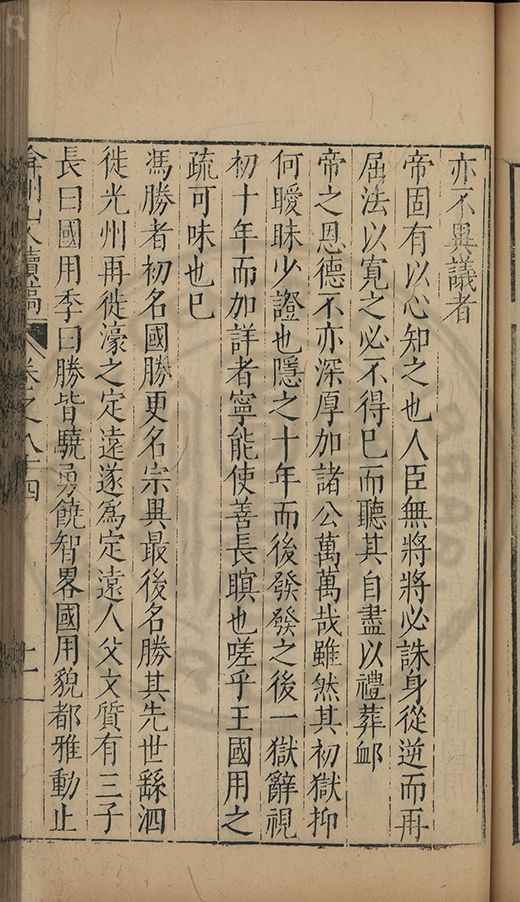 亦不異議者
帝固有以心知之也人臣無將將必誅身從逆而再
屈法以寬之必不得已而聽其自盡以禮葬䘏
帝之恩德不亦深厚加諸公萬萬哉雖然其初獄抑
何曖昧少證也隱之十年而後發發之後一獄辭視
初十年而加詳者寧能使善長瞑也嗟乎王國用之
疏可味也已
馮勝者初名國勝更名宗異最後名勝其先世繇泗
徙光州再徙濠之定遠遂爲定遠人父文質有三子
長曰國用季曰勝皆驍勇饒智畧國用貌都雅動止
弇州山人續稿 卷之八十四 十一